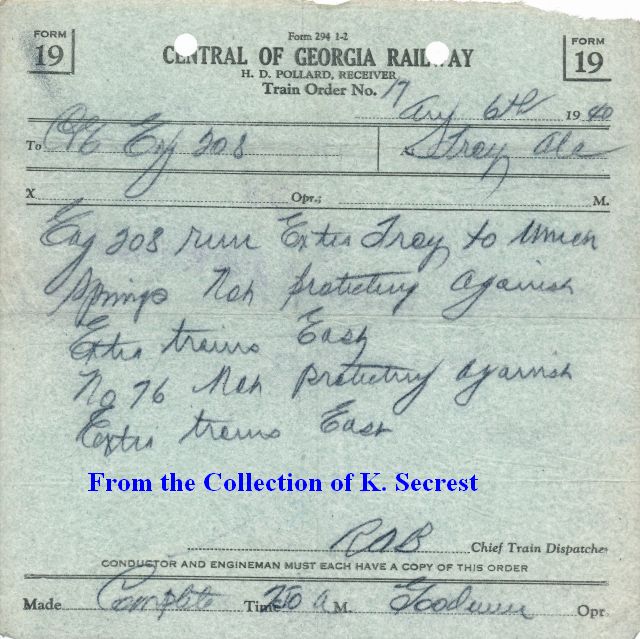 FORM
19
Form 294 1-2
CENTRAL OF GEORGIA RAILWAY
H. D. POLLARD, RECEIVER
Train Order No. 17
FORM
19
Aug 6th 1940
To C&E Eng 208 At Troy Ala
X Opr.; M.
Eng 208 run Extra Troy to Union
Springs Not protecting against
Extra trains East
No 76 Not protecting against
Extra trains East
From the Collection of K. Secrest
RAB Chief Train Dispatcher
CONDUCTOR AND ENGINEMAN MUST EACH HAVE A COPY OF THIS ORDER
Made Complete Time 250 A M. Goodwin Opr.